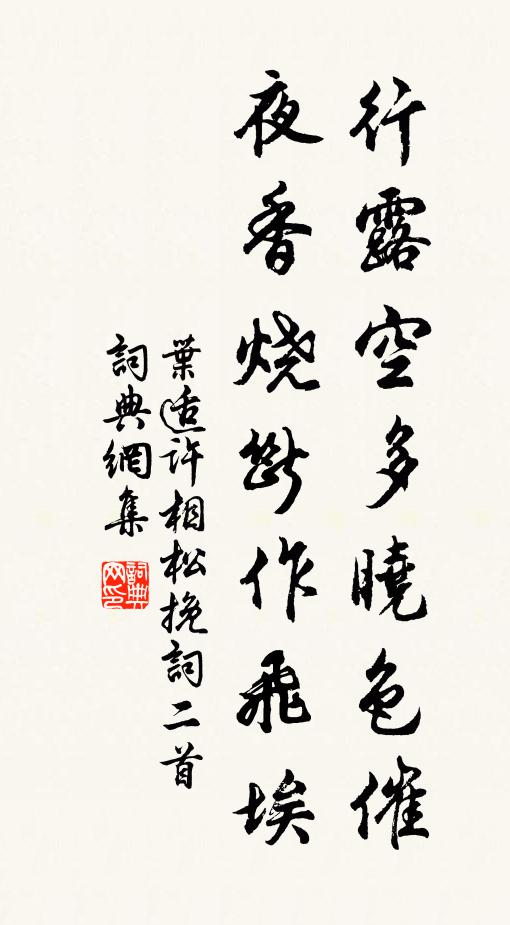 行露空多曉色催
夜香燒斷作飛埃
葉适許相松挽詞二首
詞典網集
詞典网印